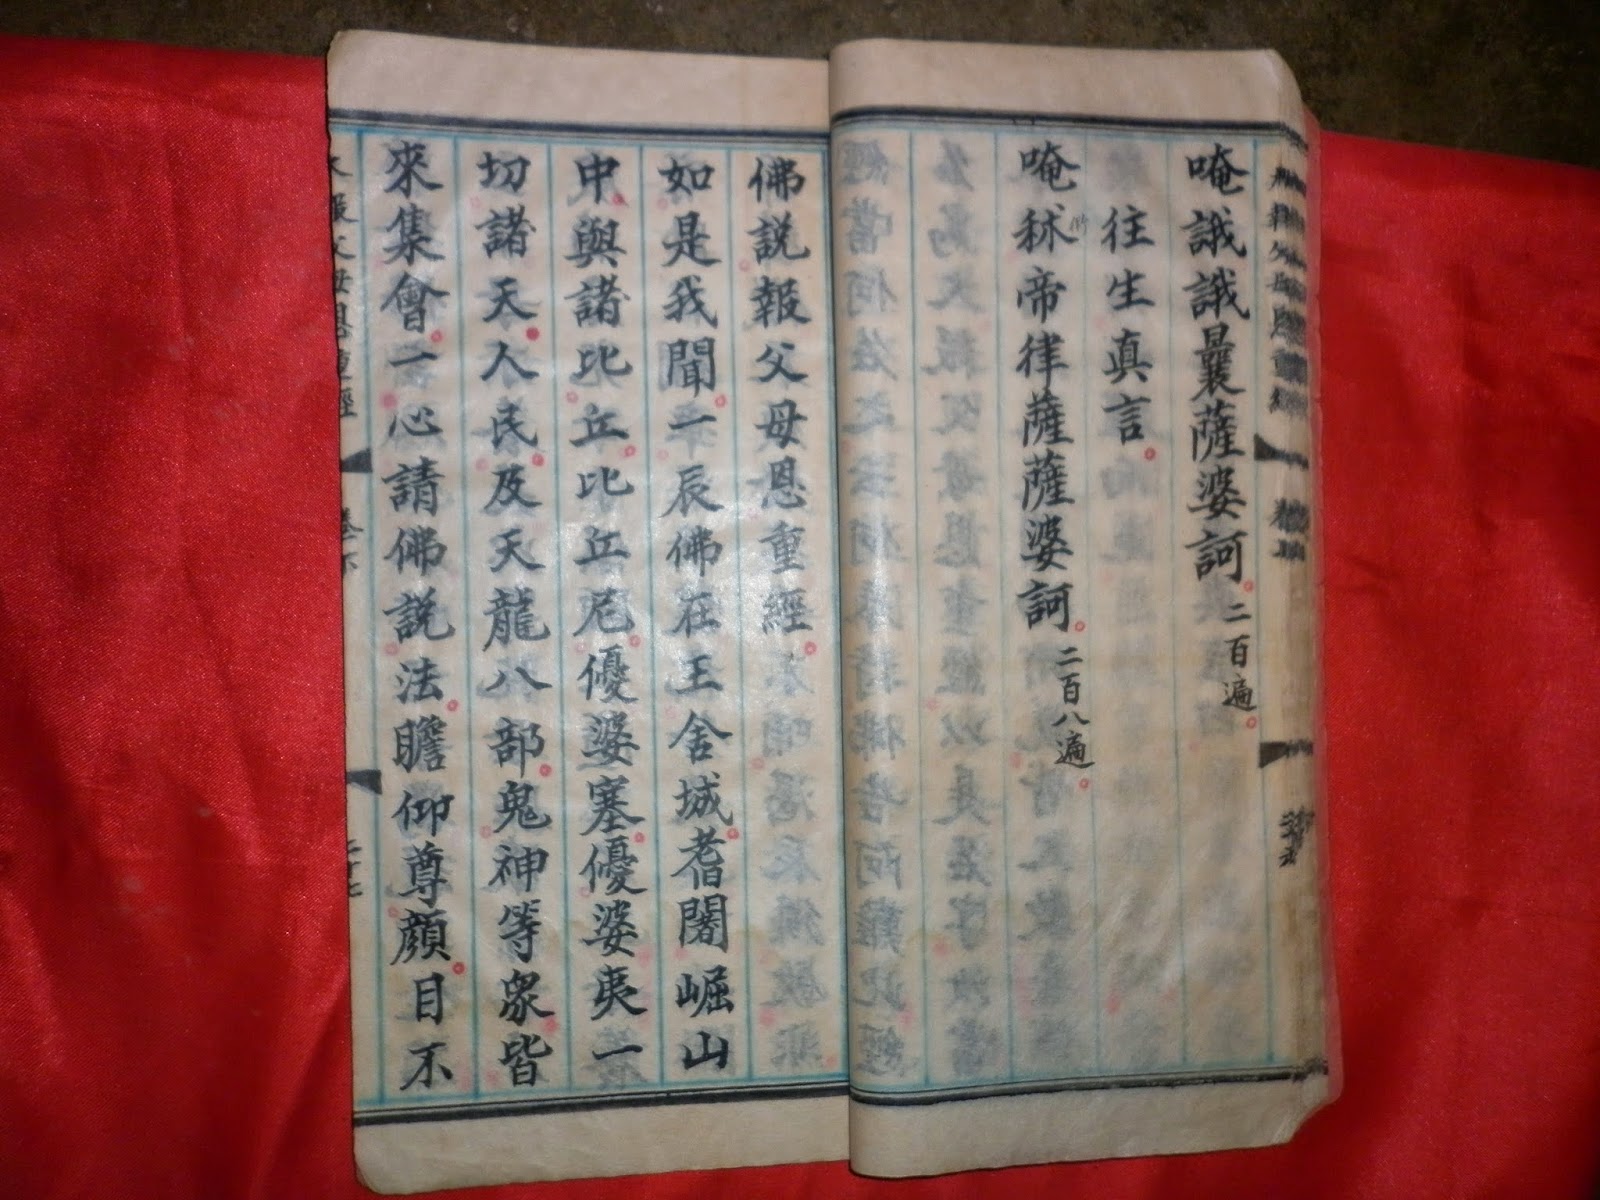 唵誐誐曩薩婆訶二百遍
往生真言
唵秫帝律薩薩婆訶二百八遍
佛説報父母恩重經
如是我聞一辰佛在王舍城耆闍崛山
中與諸比丘比丘尼優婆塞優婆夷一
切諸天人民及天龍八部鬼神等衆皆
來集會一心請佛説法瞻仰尊顔目不